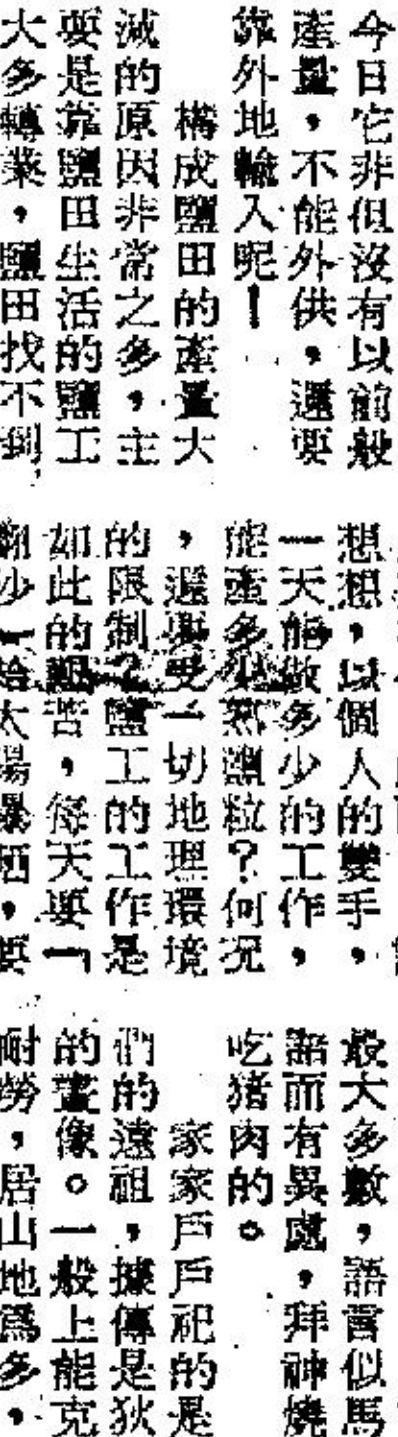 今日它非但沒有以前般
產量，不能外供，還要
靠外地輸入呢！
構成鹽田的產量大
減的原因非常之多，主
要是靠鹽田生活的鹽工
大多轉業，鹽田找不到
想想，以個人的雙手，
一天能做多少的工作，
能產多少熟鹽粒？何況
，還要受一切地理環境
的限制？鹽工的工作是
如此的艱苦，每天要「
翻沙」給太陽暴晒，要
最大多數，語言似馬
語而有異處，拜神燒
吃猪肉的。
家家戶戶祀的是
們的遠祖，據傳是狄
的畫像。一般上能克
耐勞，居山地爲多，